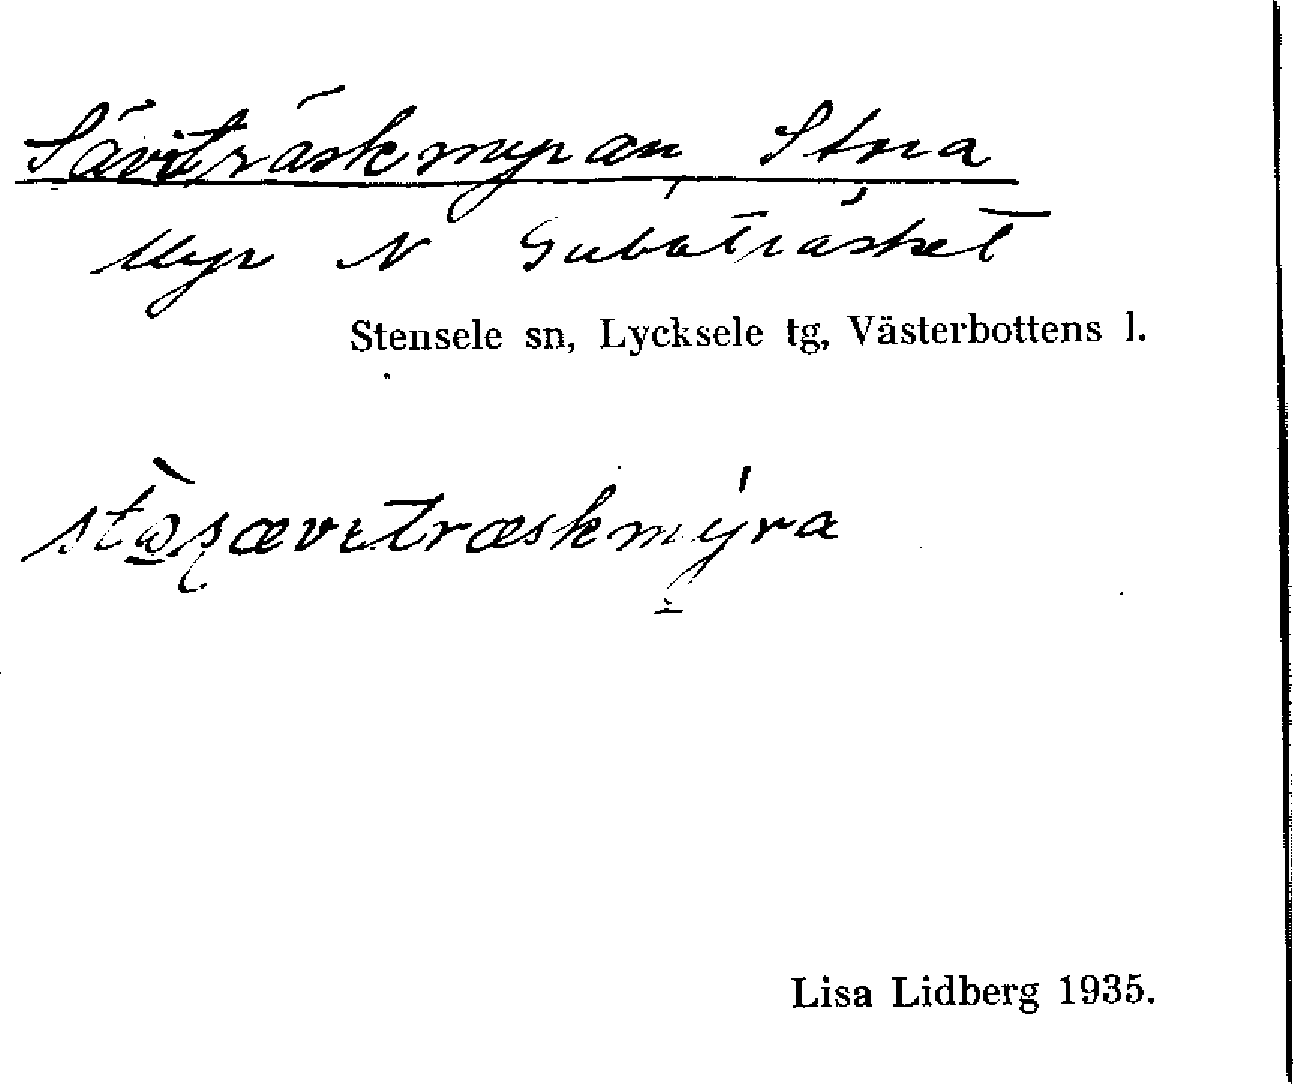 Säviträskmyran, Stora
Myr N Gubbträsket
Stensele sn, Lycksele tg, Västerbottens l.
Lisa Lidberg 1935.